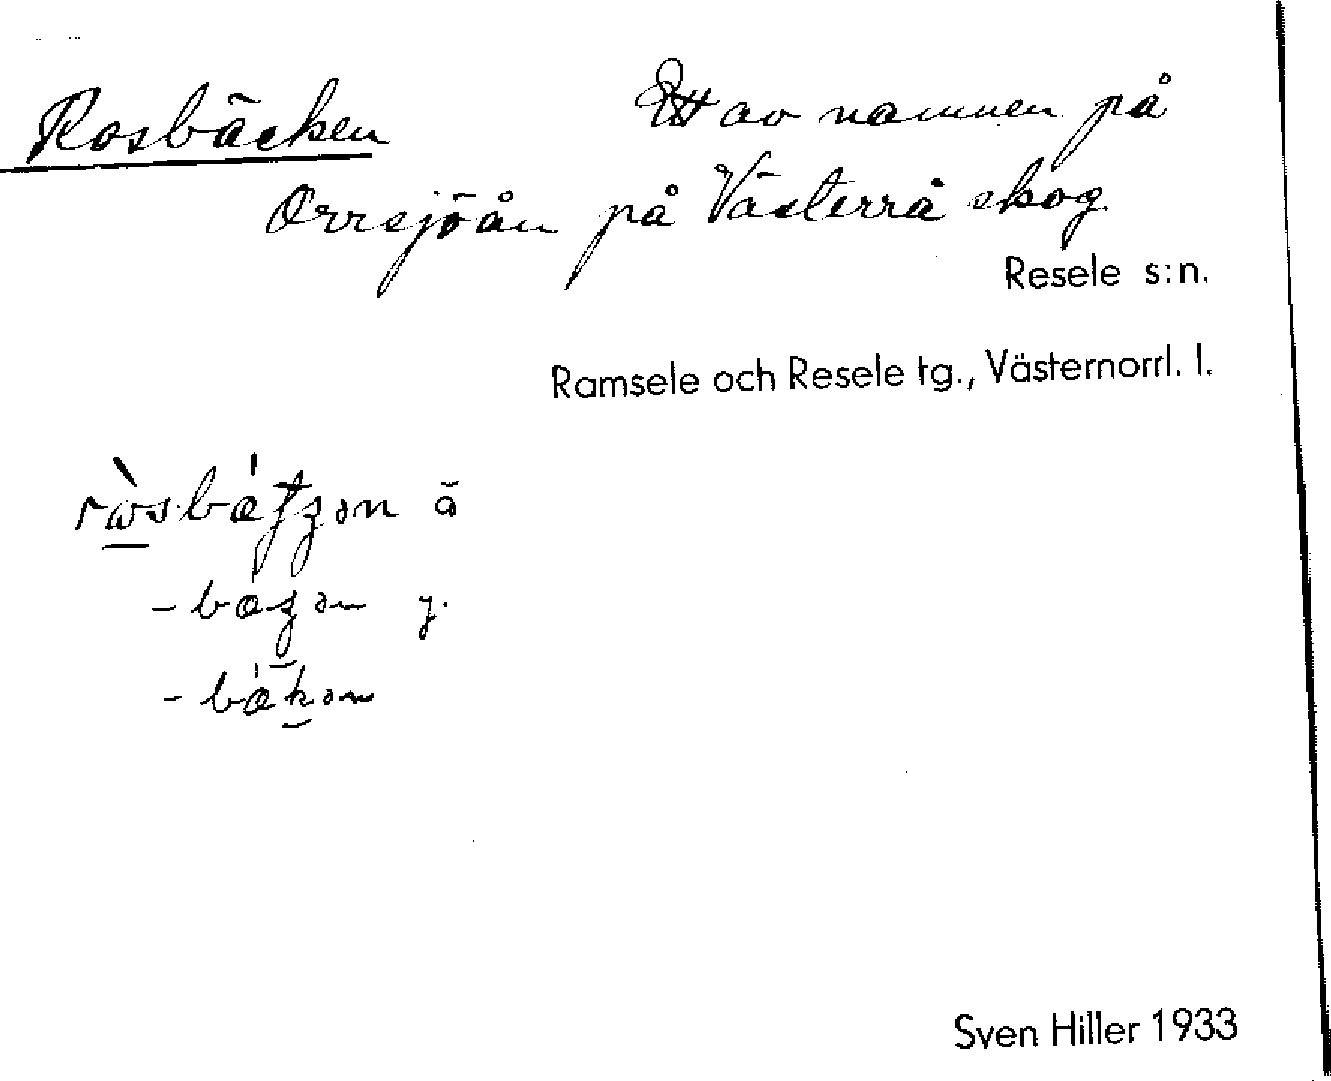 Rosbäcken Ett av namnen på
Orrsjöån på Västerrå skog
Resele s:n.
Ramsele och Resele tg., Västernorrl. l.
Sven Hiller 1933